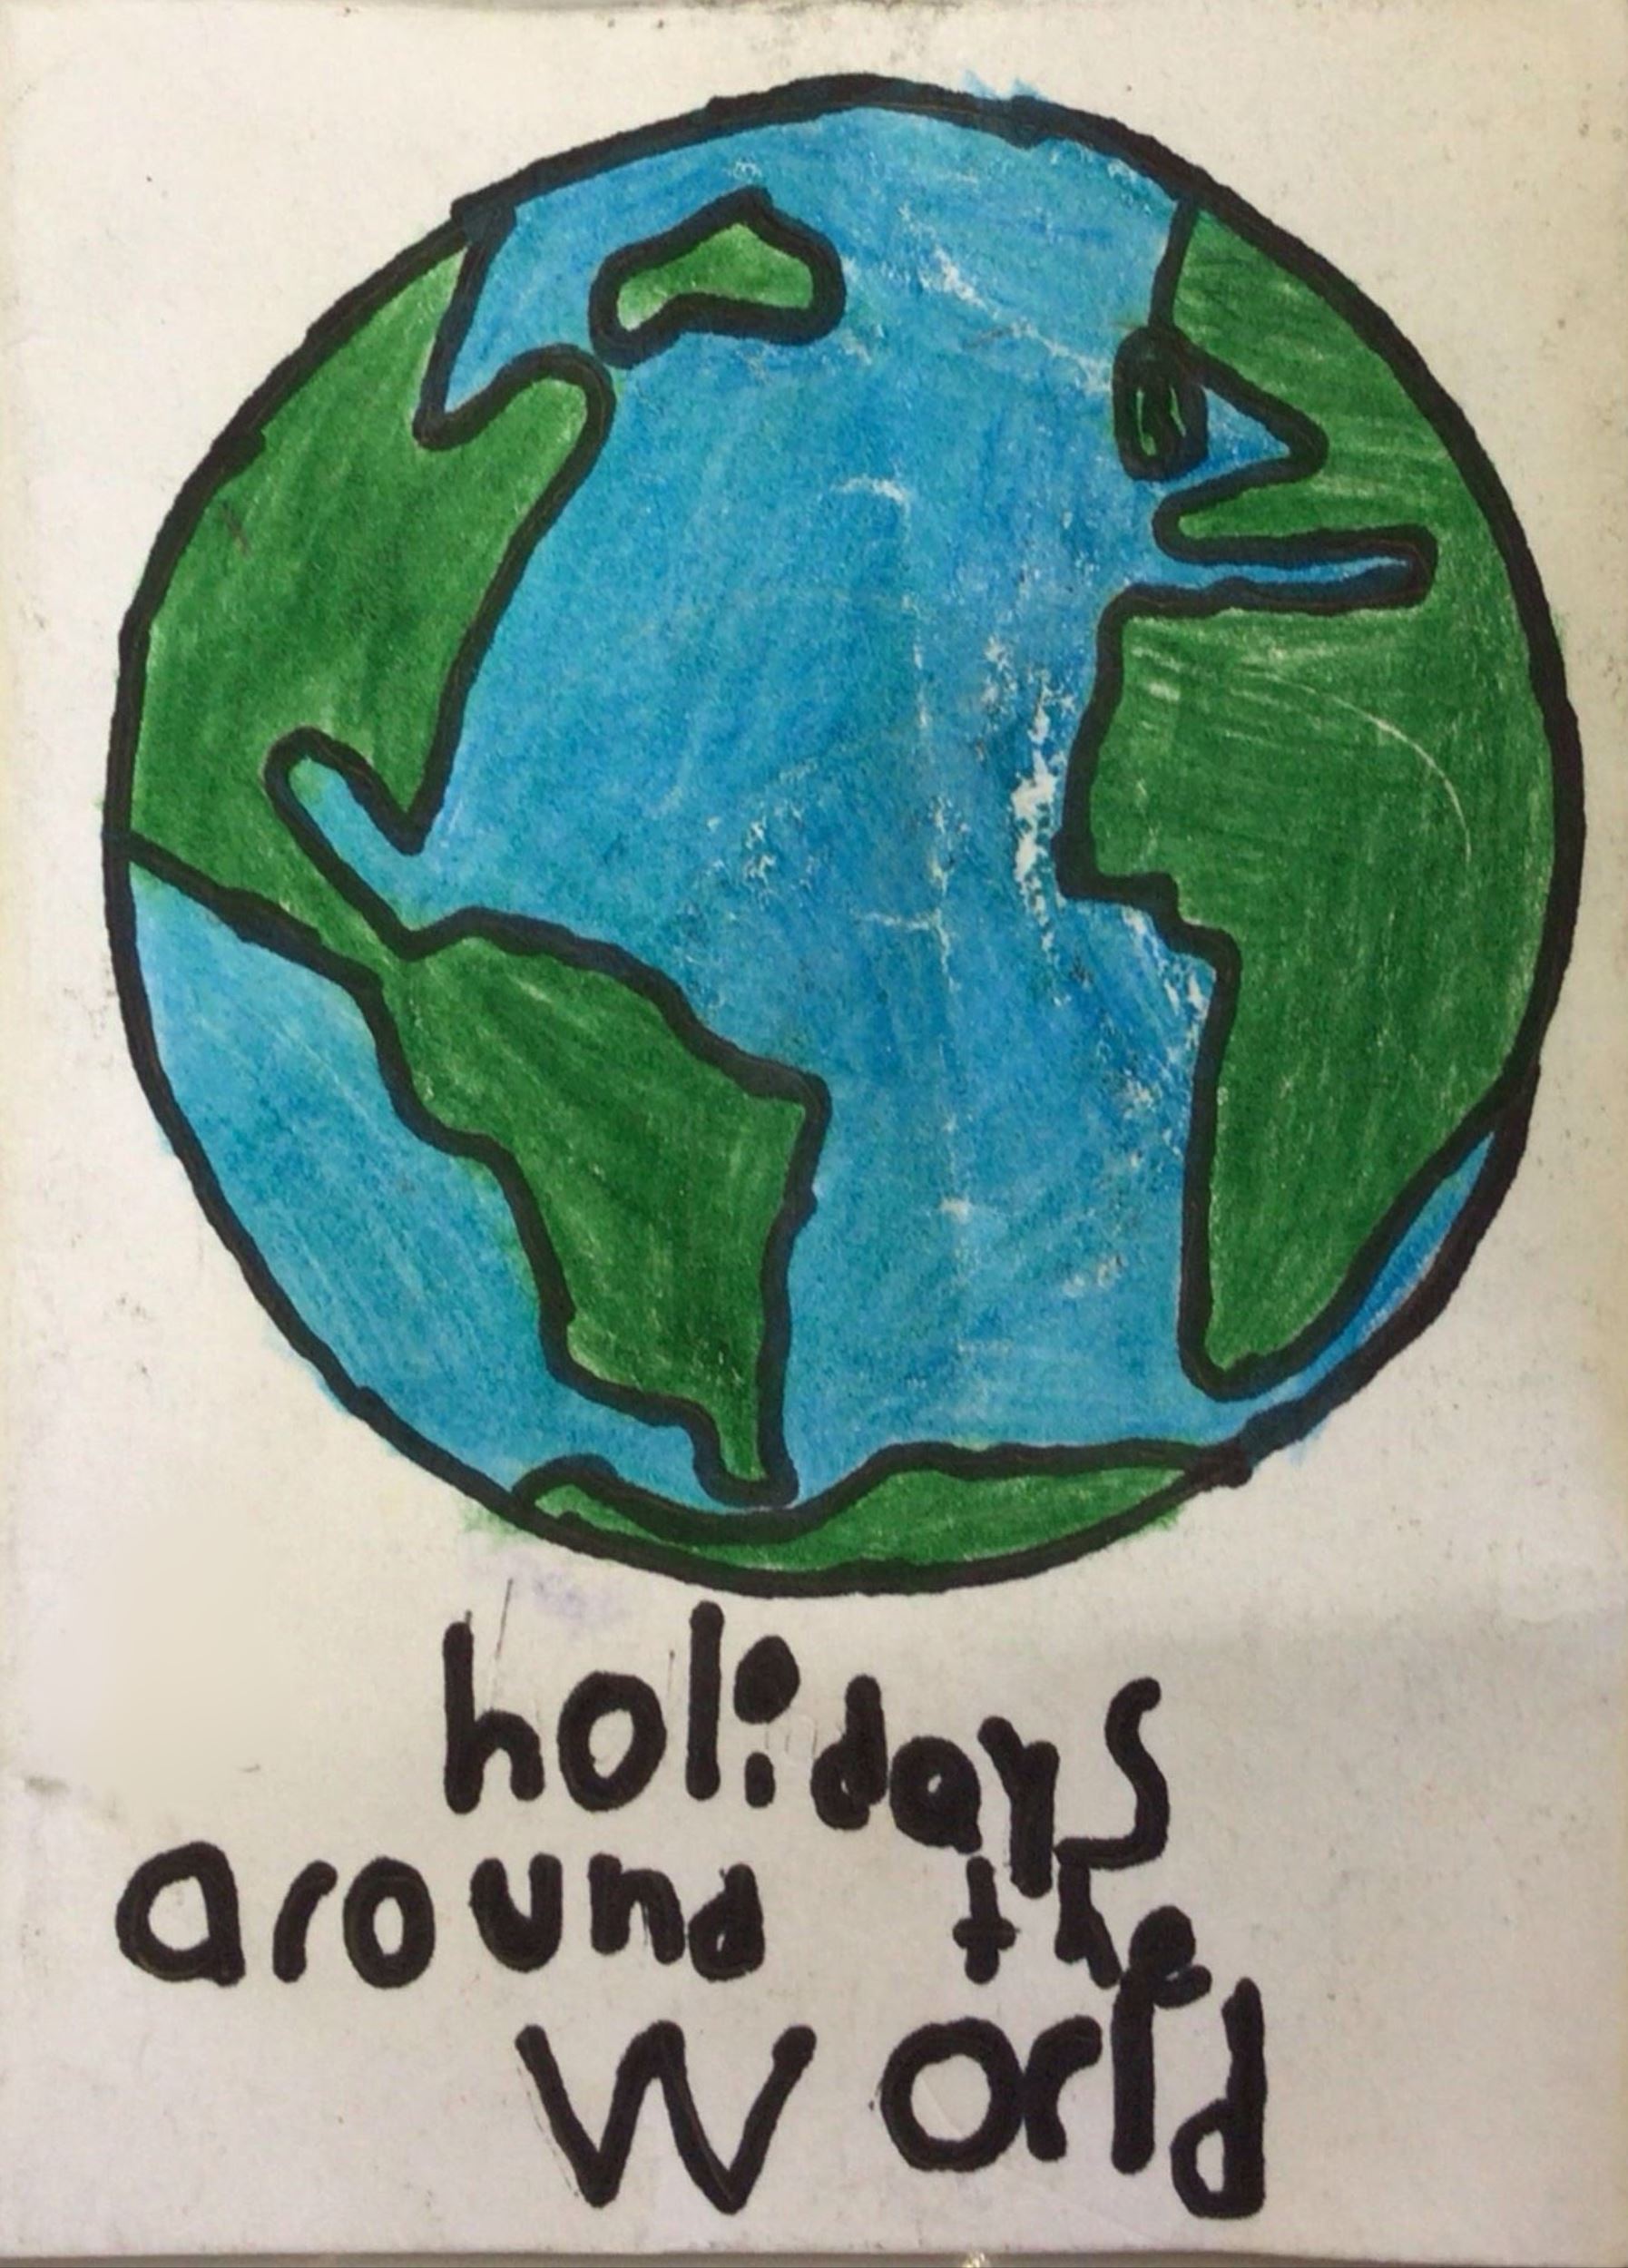 holidays
around the
World